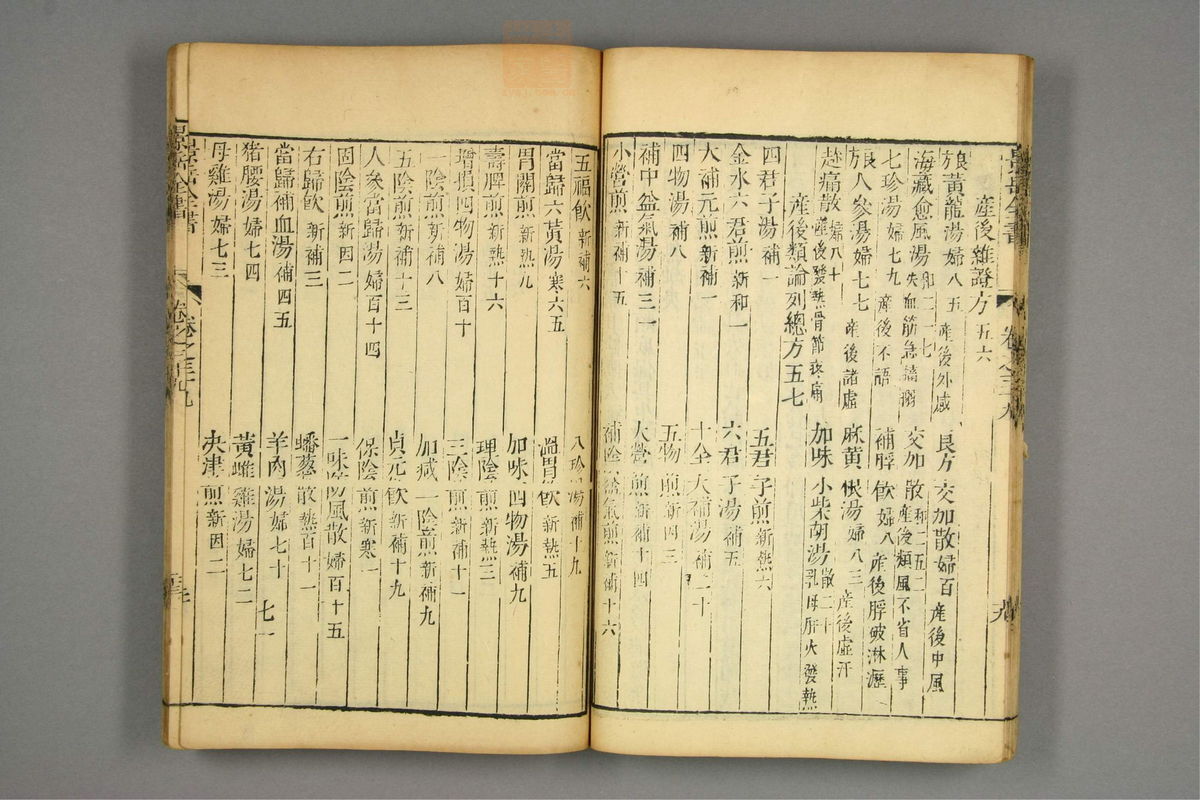 景岳全書 卷之三九
産後雜證方 五六
良方黄龍湯婦八五 産後外感 良方交加散婦百 産後中風
海藏愈風湯和二一七 失血筋急搐搦 交加散和二五二 産後類風不省人事
七珍湯婦七九 産後不語 補脬飲婦八 産後脬破淋瀝
良方人參湯婦七七 産後諸虛 麻黄根湯婦八三 産後虛汗
趂痛散婦八十 産後發熱骨節疼痛 加味小柴胡湯散二十 乳母肝火發熱
産後類論列總方五七
四君子湯補一 五君子煎新熱六
金水六君煎新和一 六君子湯補五
大補元煎新補一 十全大補湯補二十
四物湯補八 五物煎新四三
補中益氣湯補三一 大營煎新補十四
小營煎新補十五 補陰益氣煎新補十六
五福飲新補六 八珍湯補十九
當歸六黄湯寒六五 溫胃飲新熱五
胃關煎新熱九 加味四物湯補九
壽脾煎新熱十六 理陰煎新熱三
增損四物湯婦百十 三陰煎新補十一
一陰煎新補八 加减一陰煎新補九
五陰煎新補十三 貞元飲新補十九
人參當歸湯婦百十四 保陰煎新寒一
固陰煎新因二 一味防風散婦百十五
右歸飲新補三 蟠葱散熱百十一
當歸補血湯補四五 羊肉湯婦七十 七一
猪腰湯婦七四 黄雌雞湯婦七二
母雞湯婦七三 决津煎新因二
景岳全書 卷之三十九